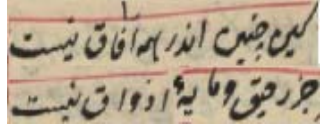 کین چنین اندر همه آفاق نیست
جز رحیق و مایهٔ اذواق نیست